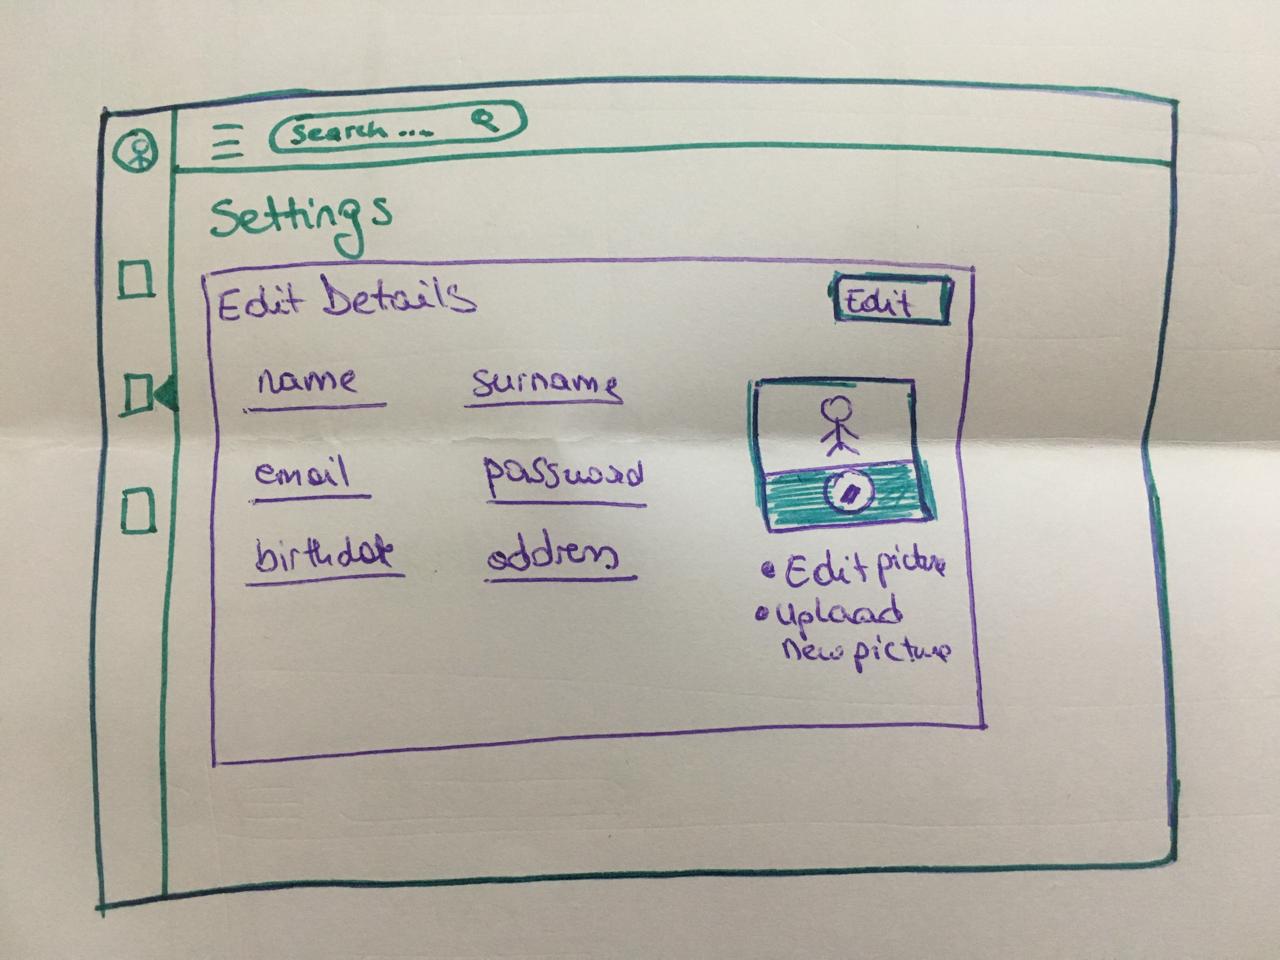 Search....
Settings
Edit Details
Edit
name
surname
email
password
birthdate
address
Edit picture
Upload
New picture